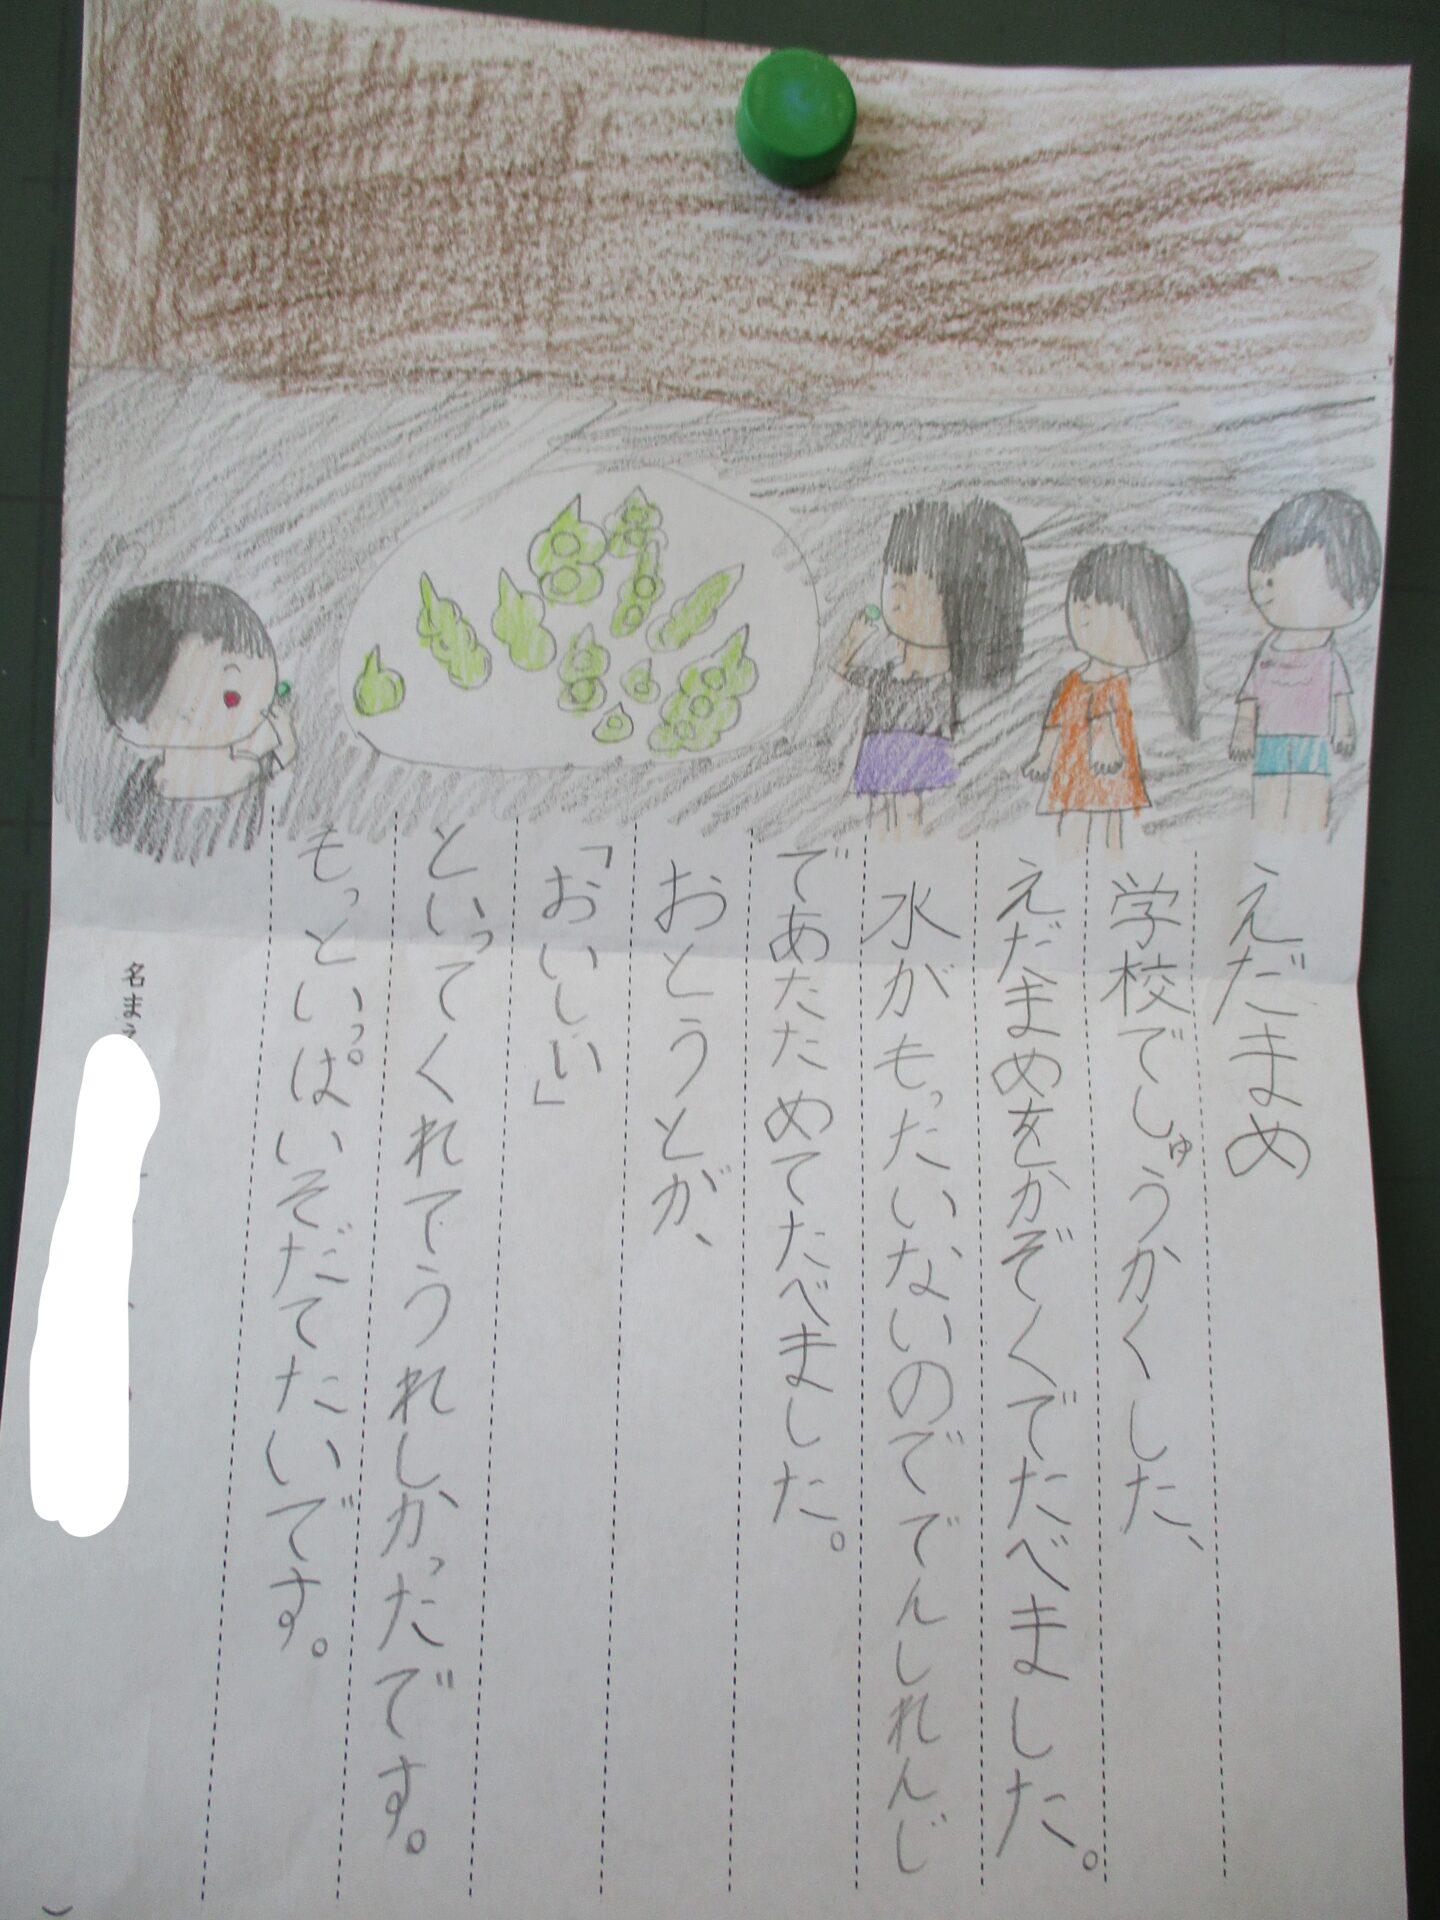 えだまめ
学校でしゅうかくした、
えだまめをかぞくでたべました。
水がもったいないのででんしれんじ
であたためてたべました。
おとうとが、
「おいしい」
といってくれてうれしかったです。
もっといっぱいそだてたいです。
名まえ